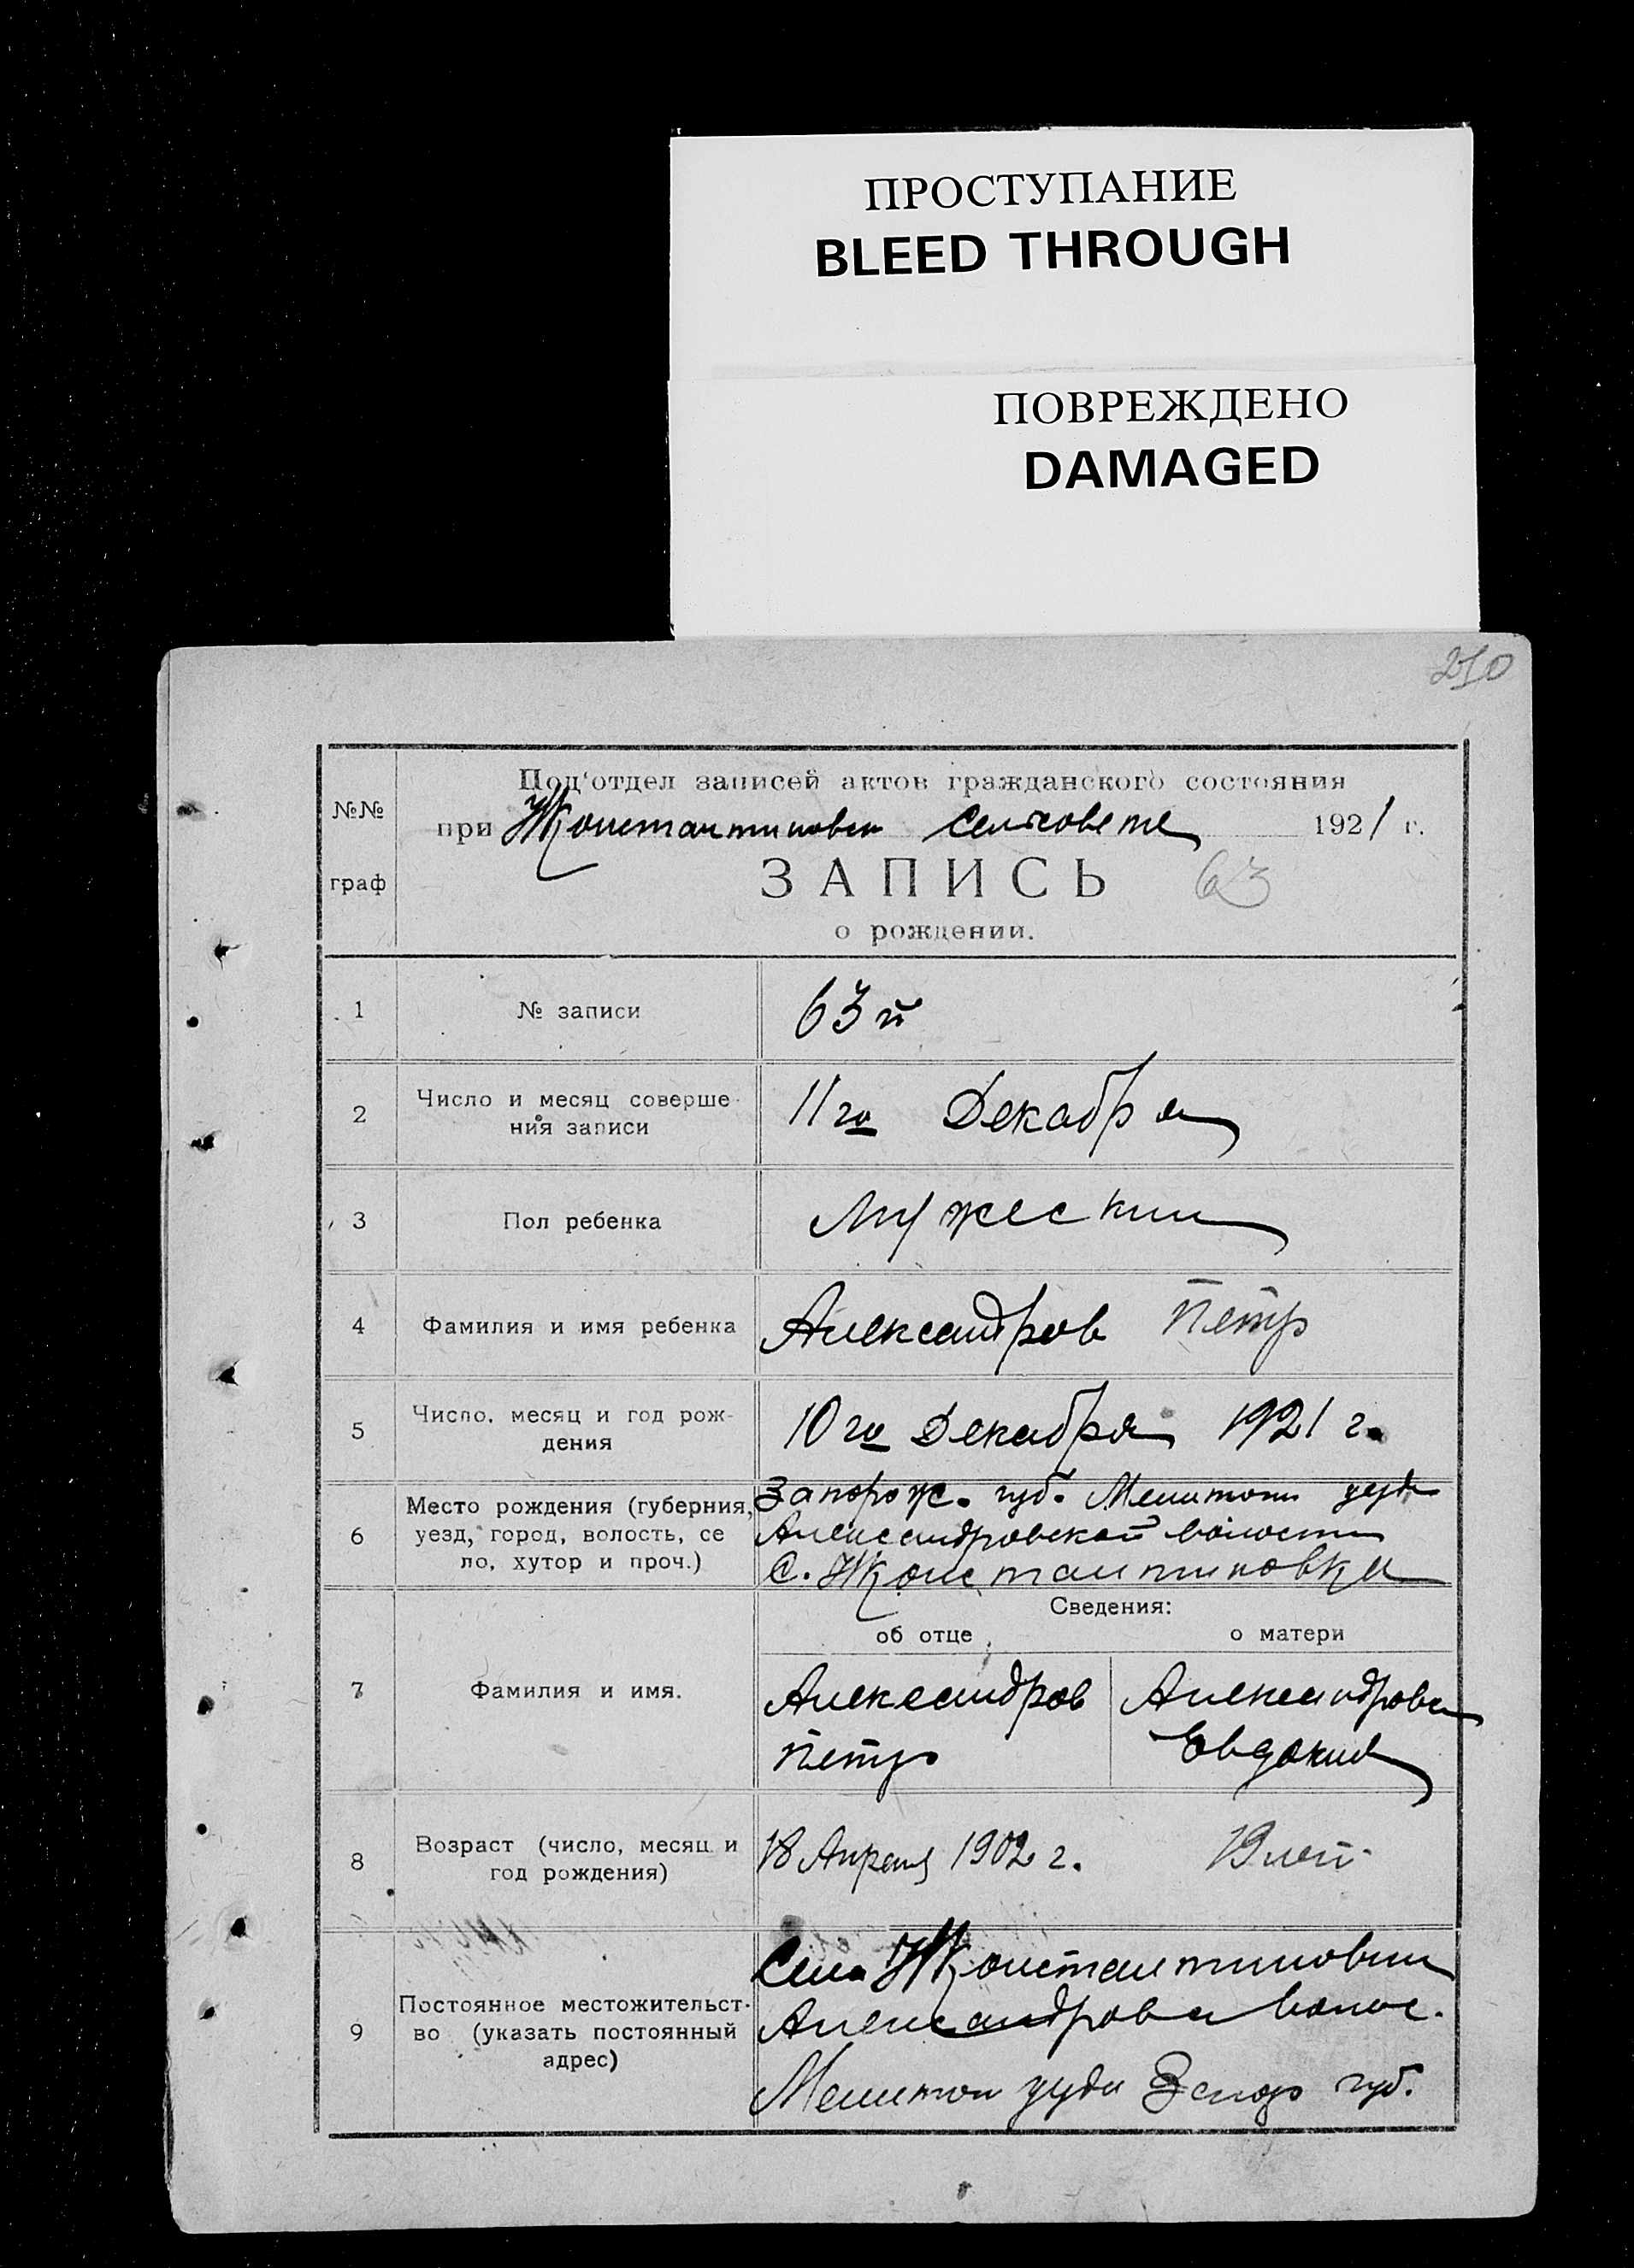 ПРОСТУПАНИЕ
BLEED THROUGH
ПОВРЕЖДЕНО
DAMAGED
210
№№
граф
Под'отдел записей актов гражданского состояния
при Константиновск сельсовете 1921 г.
ЗАПИСЬ 63
о рождении.
1 № записи 63й
2 Число и месяц соверше-
ния записи 11го Декабря
3 Пол ребенка Мужеский
4 Фамилия и имя ребенка Александров Петр
5 Число, месяц и год рож-
дения 10го Декабря 1921 г.
6 Место рождения (губерния,
уезд, город, волость, се
ло, хутор и проч.)
Запорож. губ. Мелитоп уезда
Александровской волости
С. Константиновка
Сведения:
об отце о матери
7 Фамилия и имя.
Александров Александрова
Петр Евдокия
8 Возраст (число, месяц и
год рождения) 18 Апреля 1902 г. 19 лет.
9 Постоянное местожительст-
во (указать постоянный
адрес)
Села Константиновки
Александров волос.
Мелитоп уезда Запор губ.